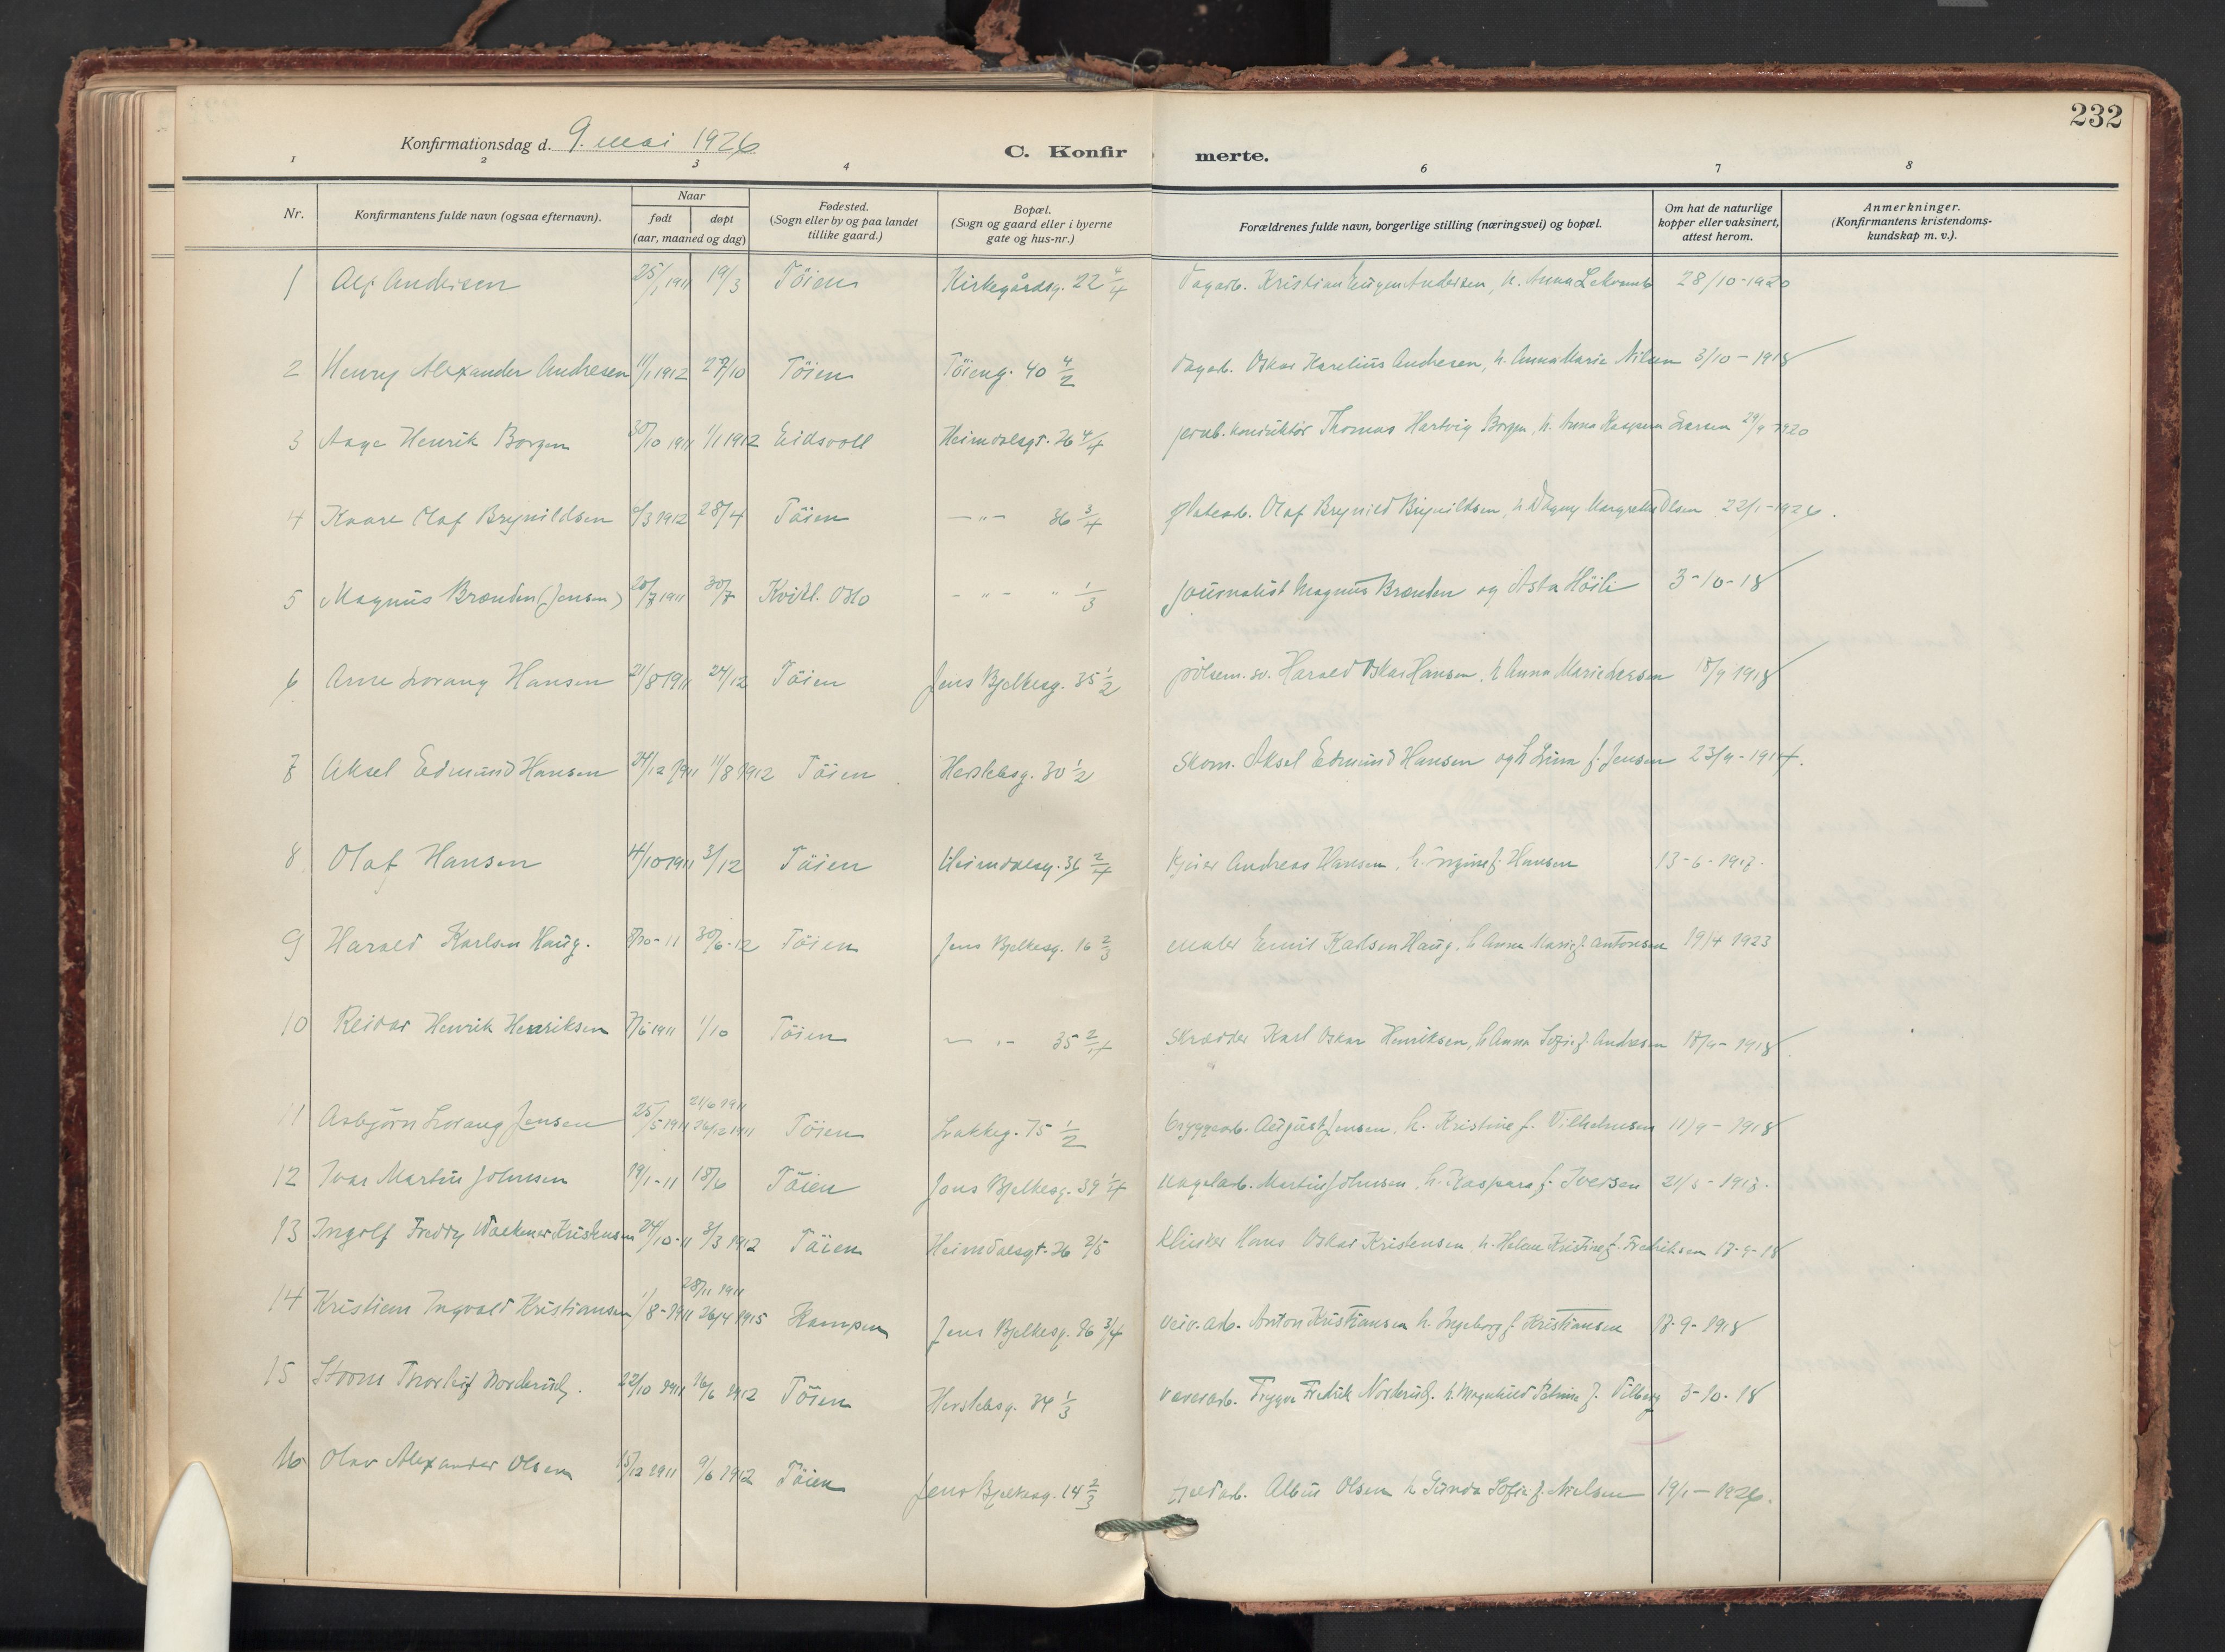 232
Konfirmationsdag d. 9. mai 1926
C. Konfir merte.
1 2 3 4 6 7 8
Nr. Konfirmantens fulde navn (ogsaa efternavn). Naar født døpt (aar, maaned og dag) Fødested. (Sogn eller by og paa landet tillike gaard.) Bopæl. (Sogn og gaard eller i byerne gate og hus-nr.) Forældrenes fulde navn, borgerlige stilling (næringsvei) og bopæl. Om hat de naturlige kopper eller vaksinert, attest herom. Anmerkninger. (Konfirmantens kristendoms-kundskap m. v.).
1 Alf Andersen 25/1 1911 19/3 Töien Kirkegårdsg. 22 4/4 Dagarb. Kristian Eugen Andersen, h. Anna 28/10-1920
2 Henry Alexander Andresen 11/1 1912 27/10 Töien Töieng. 40 4/2 Dagarb. Oskar Karelius Andresen, h. Anna Marie Nilsen 3/10-1918
3 Aage Henrik Borgen 30/10 1911 1/1 1912 Eidsvoll Heimdalsgt. 26 4/4 jernb. konduktör Thomas Hartvig Borgen, h. Anna Kaspara Larsen 29/9 1920
4 Kaare Olaf Brynildsen /3 1912 28/4 Töien -"- 36 3/4 Olaf Brynild Brynildsen, h. Dagny Margrethe Olsen 22/1-1926.
5 Magnus Brænden (Jensen) 20/7 1911 30/7 Kvitl. Oslo -"- " 1/3 Journalist Magnus Brænden og Asta Höili 3-10-18
6 Arne Lorang Hansen 21/8 1911 24/12 Töien Jens Bjelkesg. 35 1/2 pölsem. sv. Harald Oskar Hansen, h Anna Marie Larsen 18/9 1918
7 Aksel Edmund Hansen 24/12 1911 11/8 1912 Töien Herslebsg. 30 1/2 Skom. Aksel Edmund Hansen og h f. Jensen 23/9-1914.
8 Olaf Hansen 4/10 1911 3/12 Töien Heimdalsg. 36 2/4 Kjörer Andreas Hansen, h. f. Hansen 13-6-1917.
9 Harald Karlsen Haug. 8/10-11 30/6-12 Töien Jens Bjelkesg. 16 2/3 maler Emil Karlsen Haug, h Anna Marie f. Antonsen 19/4 1923
10 Reidar Henrik Henriksen 7/6 1911 1/10 Töien -"- 35 2/4 Skrædder Karl Oskar Henriksen, h Anna Sofie f. Andresen 18/9-1918
11 Asbjörn Lorang Jensen 25/5 1911 21/6 1911 26/12 1911 Töien Lakkeg. 75 1/2 bryggearb. August Jensen, h. Kristine f. Vilhelmsen 11/9-1918
12 Ivar Martin Johnsen 19/1-11 18/6 Töien Jens Bjelkesg. 39 1/4 Martin Johnsen, h. Kaspara f. Iversen 21/5-1918.
13 Ingolf Freddy Kristensen 24/10-11 3/3 1912 Töien Heimdalsgt. 26 2/5 Hans Oskar Kristensen, h. Helene Kristine f. Fredriksen 17-9-18
14 Kristian Ingvald Kristiansen 1/8-1911 28/11 1911 26/4 1915 Kampen Jens Bjelkesg. 36 3/4 veiv. arb. Anton Kristiansen h. Ingeborg f. Kristiansen 17-9-1918
15 Thorleif Norderud. 22/10 1911 16/6 1912 Töien Herslebsg. 34 1/3 Trygve Fredrik Norderud. h. Magnhild f. Vilberg 3-10-18
16 Olav Alexander Olsen 15/12 1911 9/6 1912 Töien Jens Bjelkesg. 14 2/3 Albin Olsen h Gunda Sofie f. Nielsen 19/1-1926.